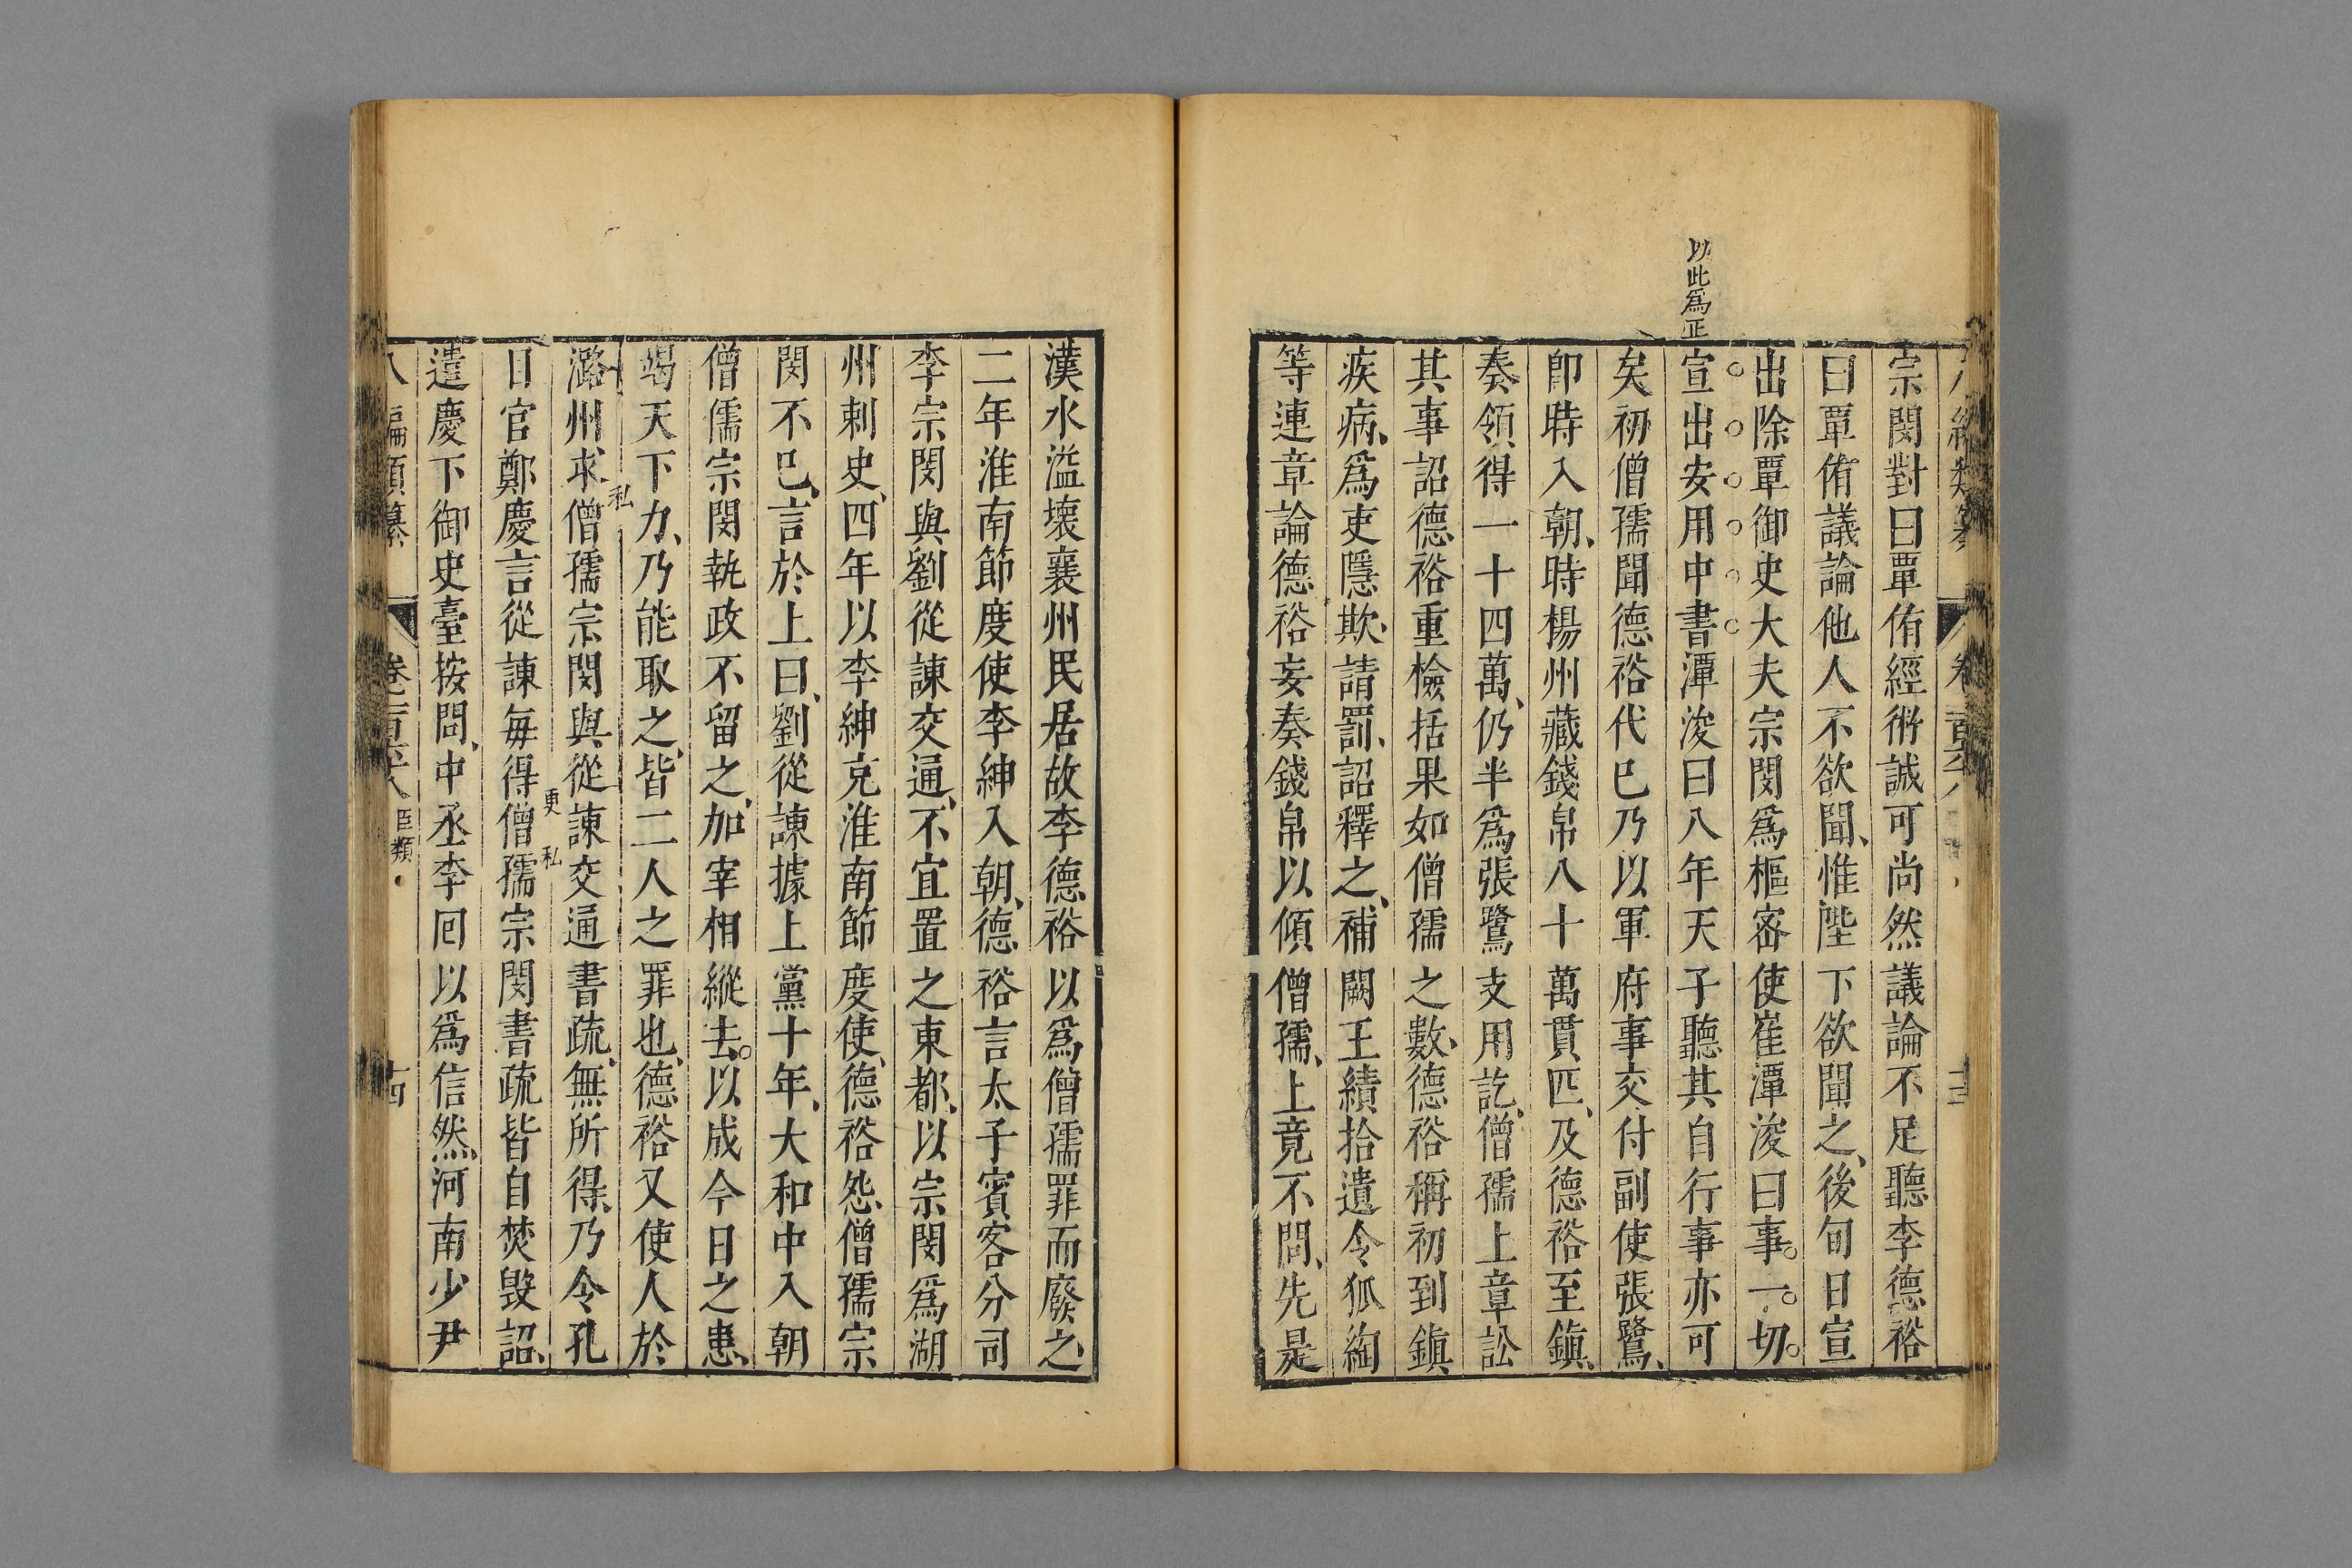 宗閔對曰覃侑經術誠可尚然議論不足聽李德裕
曰覃侑議論他人不欲聞惟陛下欲聞之後旬日宣
出除覃御史大夫宗閔爲樞密使崔潭浚曰事一切
以此爲正
宣出安用中書潭浚曰八年天子聽其自行事亦可
矣初僧孺聞德裕代已乃以軍府事交付副使張鷺
卽時入朝時楊州藏錢帛八十萬貫匹及德裕至鎭
奏領得一十四萬仍半爲張鷺支用訖僧孺上章訟
其事詔德裕重檢括果如僧孺之數德裕稱初到鎭
疾病爲吏隱欺請罰詔釋之補闕王績拾遺令狐綯
等連章論德裕妄奏錢帛以傾僧孺上竟不問先是
漢水溢壞襄州民居故李德裕以爲僧孺罪而廢之
二年淮南節度使李紳入朝德裕言太子賓客分司
李宗閔與劉從諫交通不宜置之東都以宗閔爲湖
州刺史四年以李紳克淮南節度使德裕怨僧孺宗
閔不已言於上曰劉從諫據上黨十年大和中入朝
僧儒宗閔執政不留之加宰相縱去以成今日之患
竭天下力乃能取之皆二人之罪也德裕又使人於
私
潞州求僧孺宗閔與從諫交通書疏無所得乃令孔
更私
目官鄭慶言從諫每得僧孺宗閔書疏皆自焚毀詔
遣慶下御史臺按問中丞李回以爲信然河南少尹
八編類纂 卷二百六八 臣類 十四